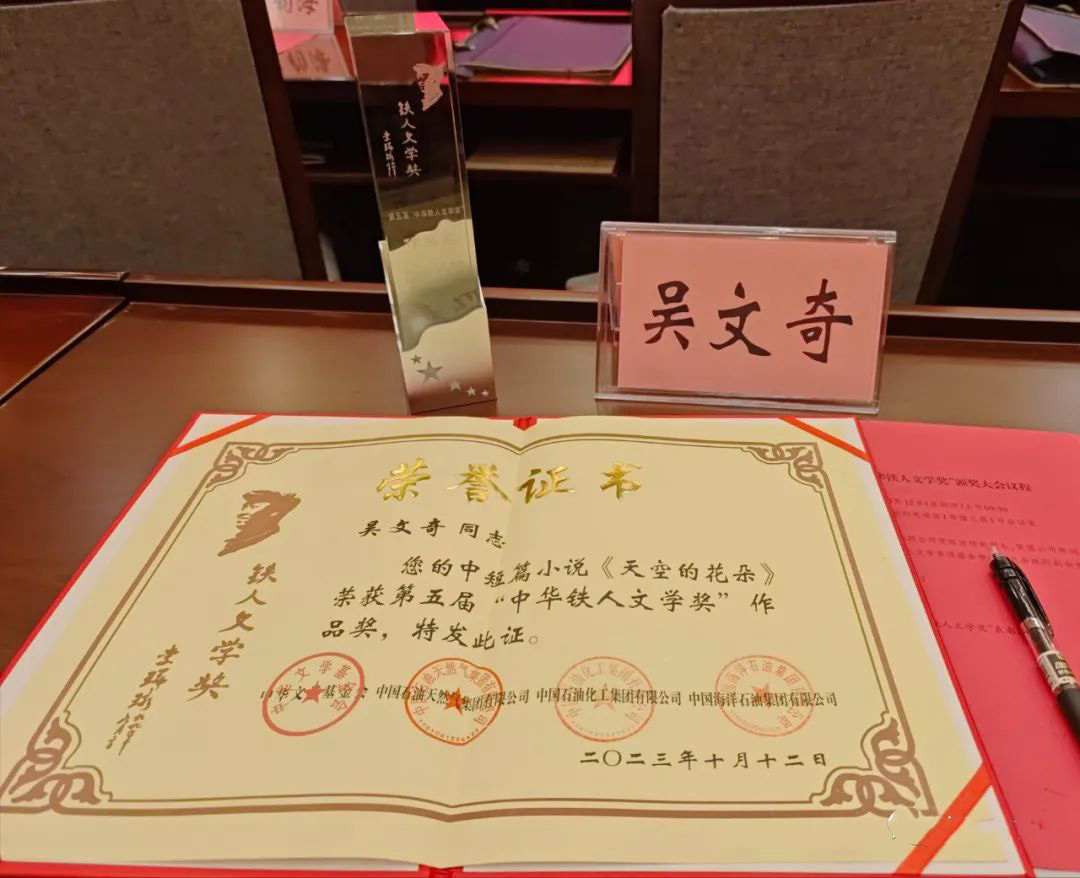 铁人文学奖
第五届"中华铁人文学奖"
吴文奇
荣誉证书
吴文奇同志
您的中短篇小说《天空的花朵》
荣获第五届“中华铁人文学奖”作
品奖，特发此证。
铁人文学奖
中华文学基金会 中国石油天然气集团有限公司 中国石油化工集团有限公司 中国海洋石油集团有限公司
二〇二三年十月十二日
铁人文学奖”颁奖大会议程